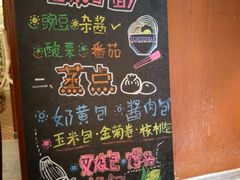 豌豆·杂酱✓
酸菜·番茄
蒸点
奶黄包·酱肉包
玉米包·金菊卷·核桃包
叉烧包·馒头